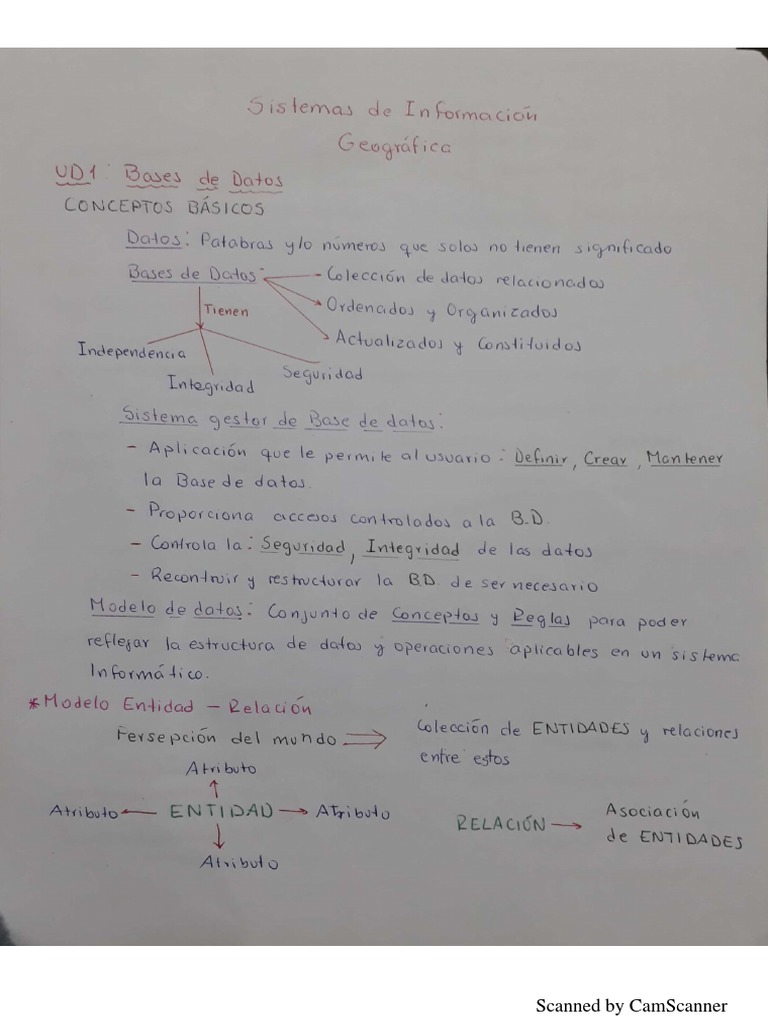 Sistemas de Información
Geográfica
UD1: Bases de Datos
CONCEPTOS BÁSICOS
Datos: Palabras y/o números que solos no tienen significado
Bases de Datos: - Colección de datos relacionados
Ordenados y Organizados
Actualizados y Constituidos
Tienen
Independencia
Integridad
Seguridad
Sistema gestor de Base de datos:
- Aplicación que le permite al usuario: Definir, Crear, Mantener
la Base de datos.
- Proporciona accesos controlados a la B.D.
- Controla la: Seguridad, Integridad de las datos
- Recontruir y restructurar la B.D. de ser necesario
Modelo de datos: Conjunto de Conceptos y Reglas para poder
reflejar la estructura de datos y operaciones aplicables en un sistema
Informático.
* Modelo Entidad - Relación
Persepción del mundo ⇒ Colección de ENTIDADES y relaciones
entre estos
Atributo
Atributo ← ENTIDAD → Atributo
Atributo
RELACIÓN → Asociación
de ENTIDADES
Scanned by CamScanner